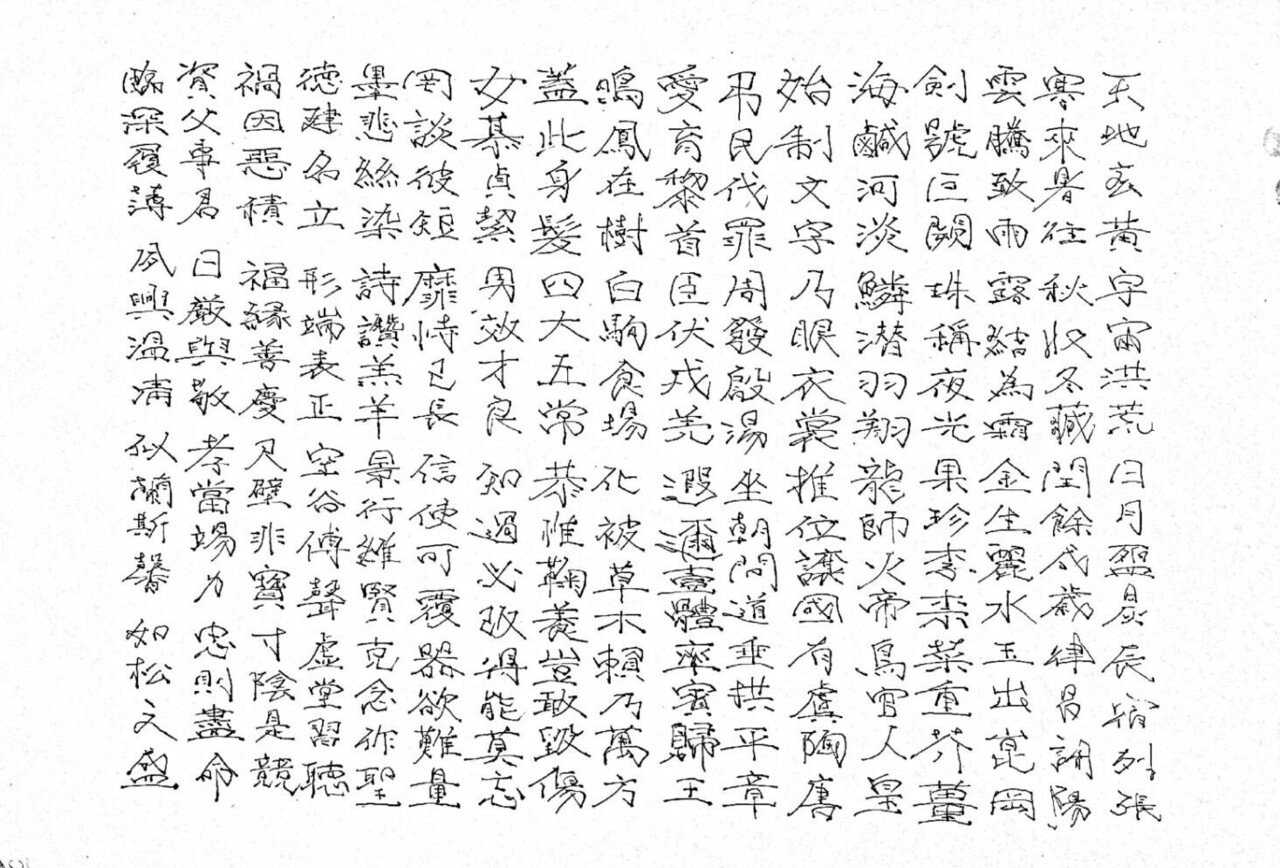 天地玄黃宇宙洪荒日月盈昃辰宿列張
寒來暑往秋收冬藏閏餘成歲律呂調陽
雲騰致雨露結為霜金生麗水玉出崑岡
劍號巨闕珠稱夜光果珍李柰菜重芥薑
海鹹河淡鱗潜羽翔龍師火帝鳥官人皇
始制文字乃服衣裳推位讓國有虞陶唐
弔民伐罪周發殷湯坐朝問道垂拱平章
愛育黎首臣伏戎羌遐邇壹體率賓歸王
鳴鳳在樹白駒食場化被草木賴乃萬方
蓋此身髮四大五常恭惟鞠養豈敢毀傷
女慕貞絜男效才良知過必改得能莫忘
罔談彼短靡恃己長信使可覆器欲難量
墨悲絲染詩讚羔羊景行維賢克念作聖
徳建名立形端表正空谷傳聲虛堂習聽
禍因惡積福緣善慶尺璧非寶寸陰是競
資父事君曰嚴與敬孝當竭力忠則盡命
臨深履薄夙興温凊似蘭斯馨如松之盛